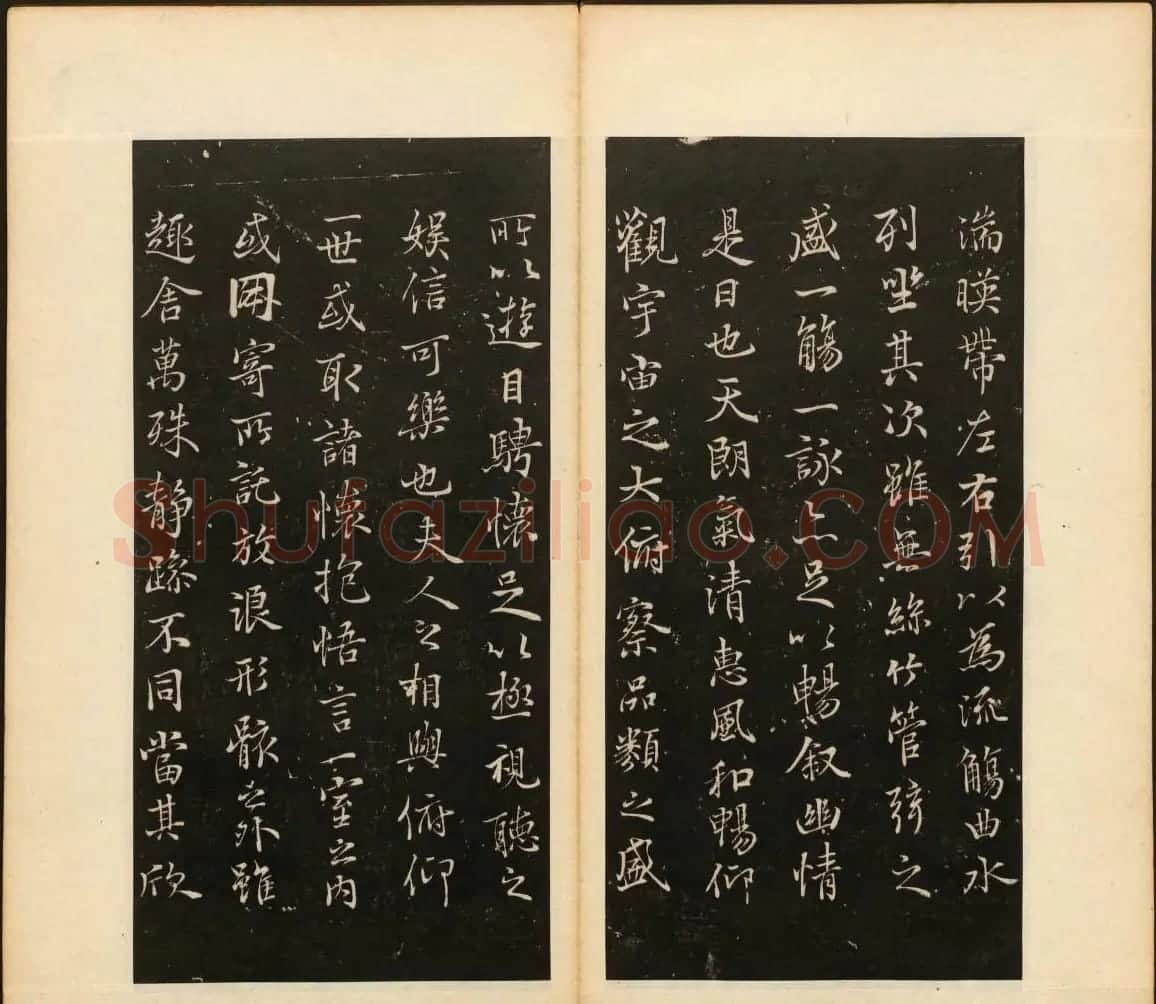 湍暎帶左右引以為流觴曲水
列坐其次雖無絲竹管弦之
盛一觴一詠亦足以暢叙幽情
是日也天朗氣清惠風和暢仰
觀宇宙之大俯察品類之盛
所以遊目騁懷足以極視聽之
娛信可樂也夫人之相與俯仰
一世或取諸懷抱悟言一室之內
或因寄所託放浪形骸之外雖
趣舍萬殊静躁不同當其欣
Shufaziliao.COM